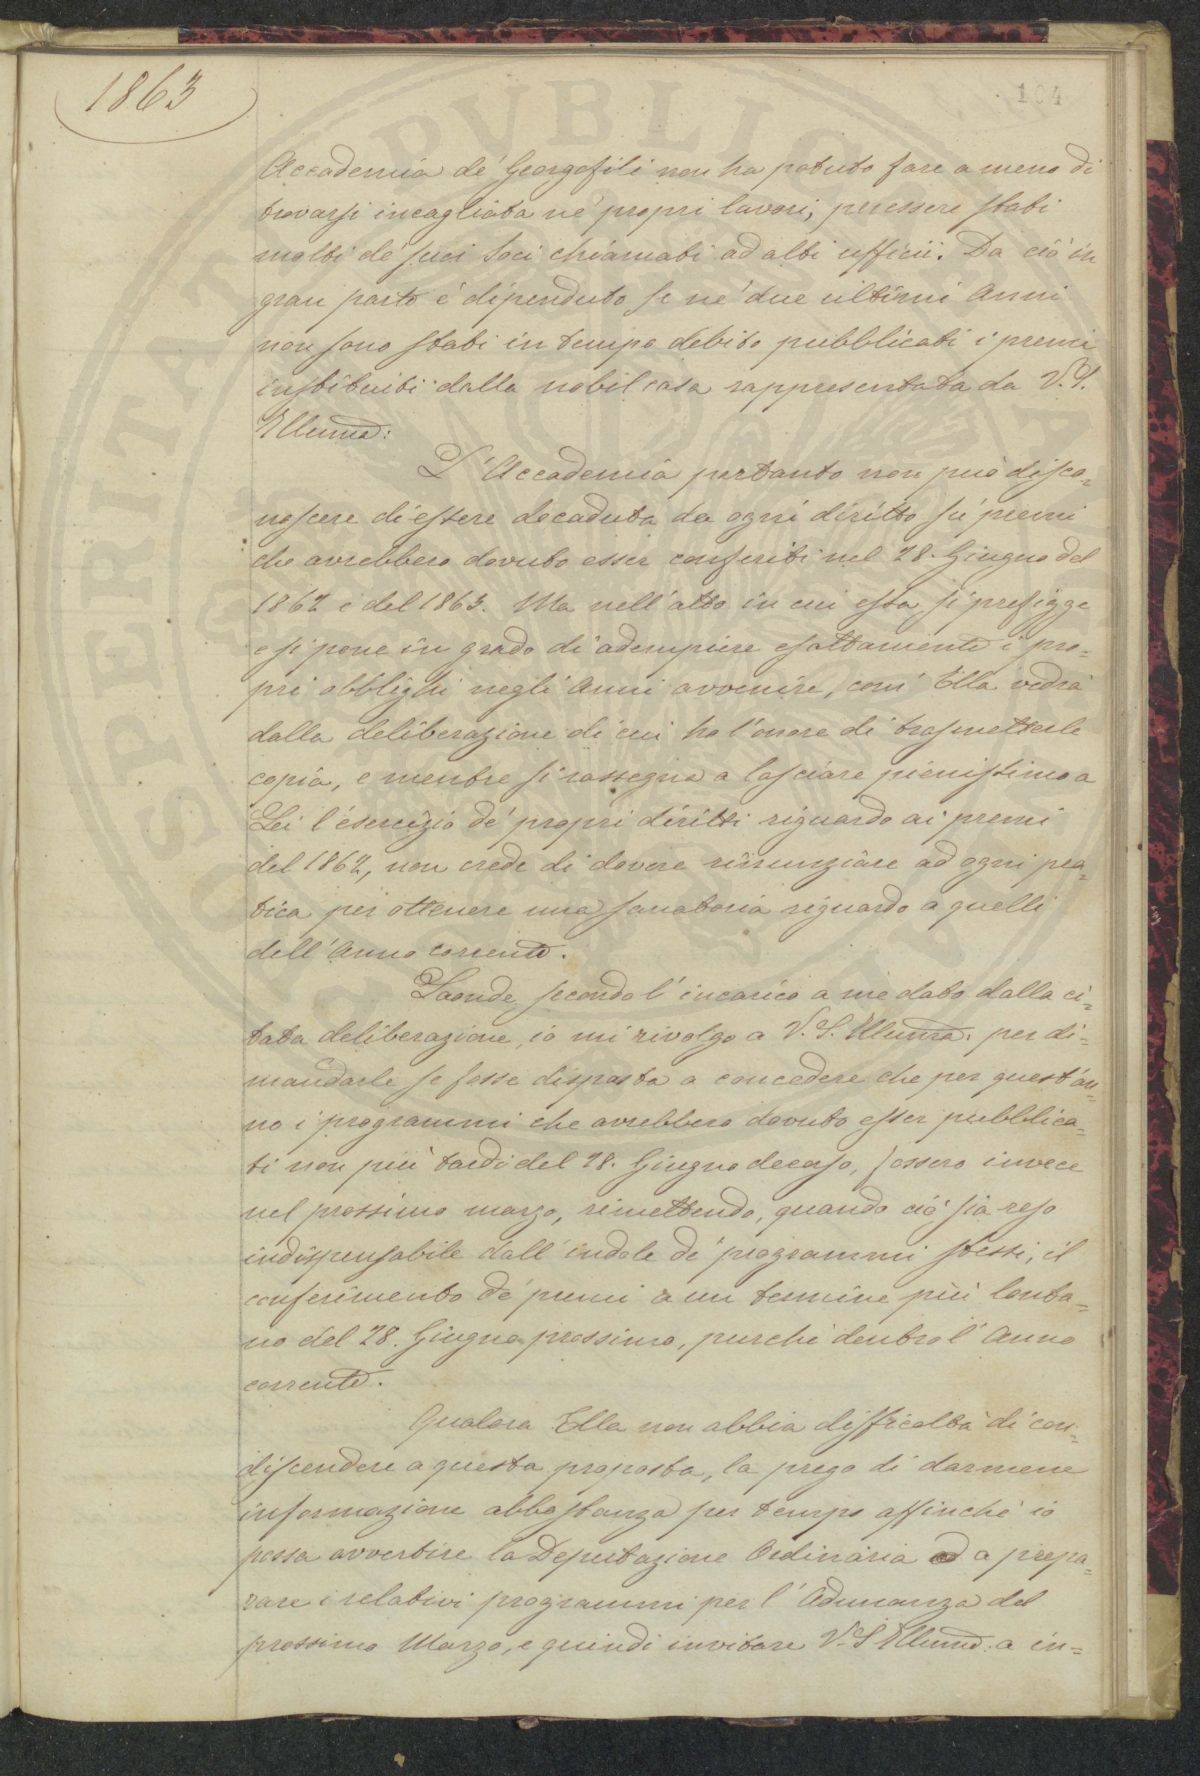 1863
104
PUBLICAE
PROSPERITATI
Accademia de' Georgofili non ha potuto fare a meno di
trovarsi incagliata ne' propri lavori, per essere stati
molti de' suoi Soci chiamati ad alti ufficii. Da ciò in
gran parte è dipenduto se ne' due ultimi Anni
non sono stati in tempo debito pubblicati i premi
instituiti dalla nobil casa rappresentata da V. S.
Illuma:
L'Accademia pertanto non può disco=
noscere di essere decaduta da ogni diritto su' premi
che avrebbero dovuto esser conferiti nel 28. Giugno del
1862 e del 1863. Ma nell'atto in cui essa si prefigge
e si pone in grado di adempiere esattamente i pro=
pri obblighi negli Anni avvenire, com' Ella vedrà
dalla deliberazione di cui ho l'onore di trasmetterle
copia, e mentre si rassegna a lasciare pienissimo a
Lei l'esercizio de' propri diritti riguardo ai premi
del 1862, non crede di dovere rinunziare ad ogni pra=
tica per ottenere una sanatoria riguardo a quelli
dell'Anno corrente.
Laonde secondo l'incarico a me dato dalla ci=
tata deliberazione, io mi rivolgo a V. S. Illuma. per di=
mandarle se fosse disposta a concedere che per quest'an=
no i programmi che avrebbero dovuto esser pubblica=
ti non più tardi del 28. Giugno decorso, fossero invece
nel prossimo marzo, rimettendo, quando ciò sia reso
indispensabile dall'indole de' programmi stessi, il
conferimento de' premi a un termine più lonta=
no del 28. Giugno prossimo, purchè dentro l'Anno
corrente.
Qualora Ella non abbia difficoltà di con=
discendere a questa proposta, la prego di darmene
informazione abbastanza per tempo affinchè io
possa avvertire la Deputazione Ordinaria a prepa=
rare i relativi programmi per l'Adunanza del
prossimo Marzo, e quindi invitare V. S Illuma: a in=